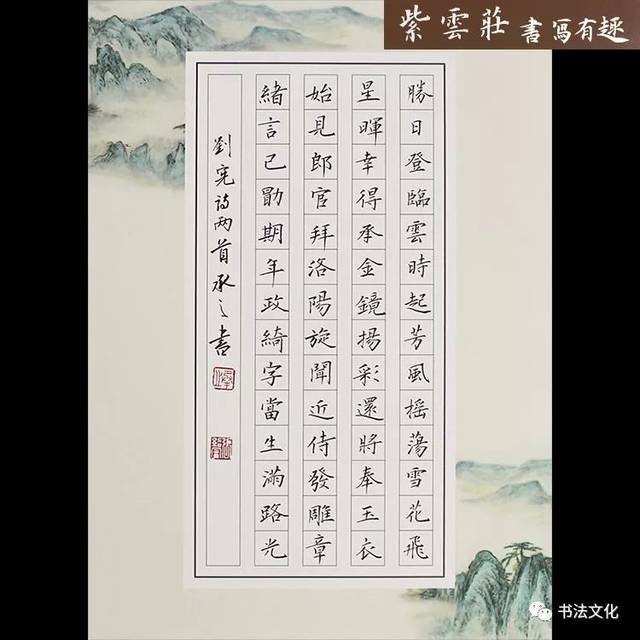 紫雲莊 書寫有趣
勝日登臨雲時起芳風摇蕩雪花飛
星暉幸得承金鏡揚彩還將奉玉衣
始見郎官拜洛陽旋聞近侍發雕章
緒言已勖期年政綺字當生滿路光
劉宪诗两首承之書
书法文化